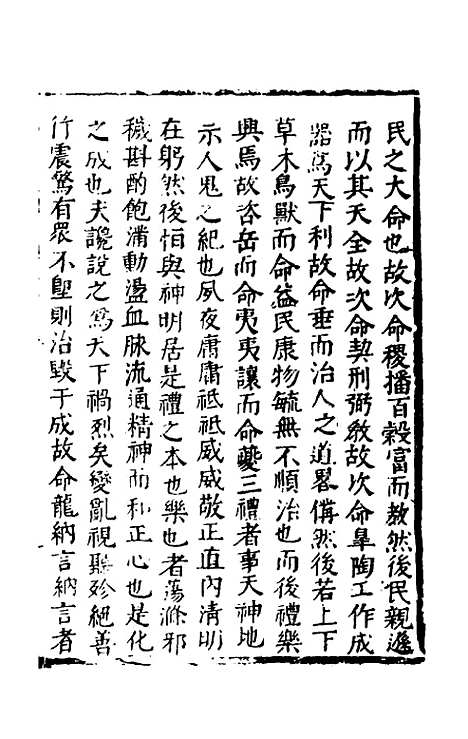 民之大命也故次命稷播百穀富而教然後民親遜
而以其天全故次命契刑弼教故次命皐陶工作成
器爲天下利故命垂而治人之道畧備然後若上下
草木鳥獸而命益民康物毓無不順治也而後禮樂
興焉故咨岳而命夷夷讓而命夔三禮者事天神地
示人鬼之紀也夙夜庸肅祗祗威威敬正直内清明
在躬然後怕與神明居是禮之本也樂也者蕩滌邪
穢斟酌飽滿動盪血脉流通精神而和正心也是化
之成也夫讒說之爲天下禍烈矣變亂視聽殄絕善
行震驚有衆不塈則治毀于成故命龍納言納言者